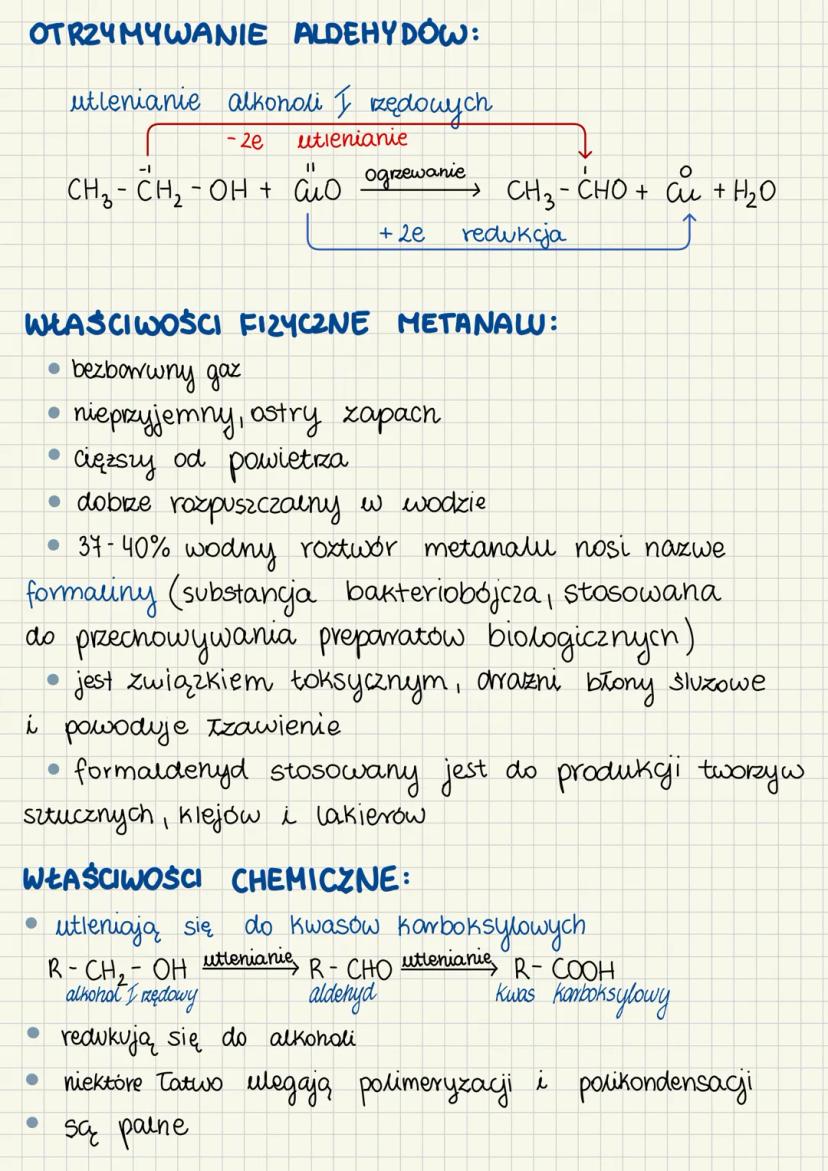 OTRZYMYWANIE ALDEHYDÓW:
utlenianie alkoholi I rzędowych
-2e utlenianie
-I II ogrzewanie I O
CH₃ - CH₂ - OH + CuO → CH₃ - CHO + Cu + H₂O
+ 2e redukcja
WŁAŚCIWOŚCI FIZYCZNE METANALU:
• bezbarwny gaz
• nieprzyjemny, ostry zapach
• cięższy od powietrza
• dobrze rozpuszczalny w wodzie
• 37-40% wodny roztwór metanalu nosi nazwe
formaliny (substancja bakteriobójcza, stosowana
do przechowywania preparatów biologicznych)
• jest związkiem toksycznym, drażni błony śluzowe
i powoduje łzawienie
• formaldehyd stosowany jest do produkcji tworzyw
sztucznych, klejów i lakierów
WŁAŚCIWOŚCI CHEMICZNE:
• utleniają się do kwasów karboksylowych
R - CH₂ - OH utlenianie → R - CHO utlenianie → R - COOH
alkohol I rzędowy aldehyd kwas karboksylowy
• redukują się do alkoholi
• niektóre łatwo ulegają polimeryzacji i polikondensacji
• są palne